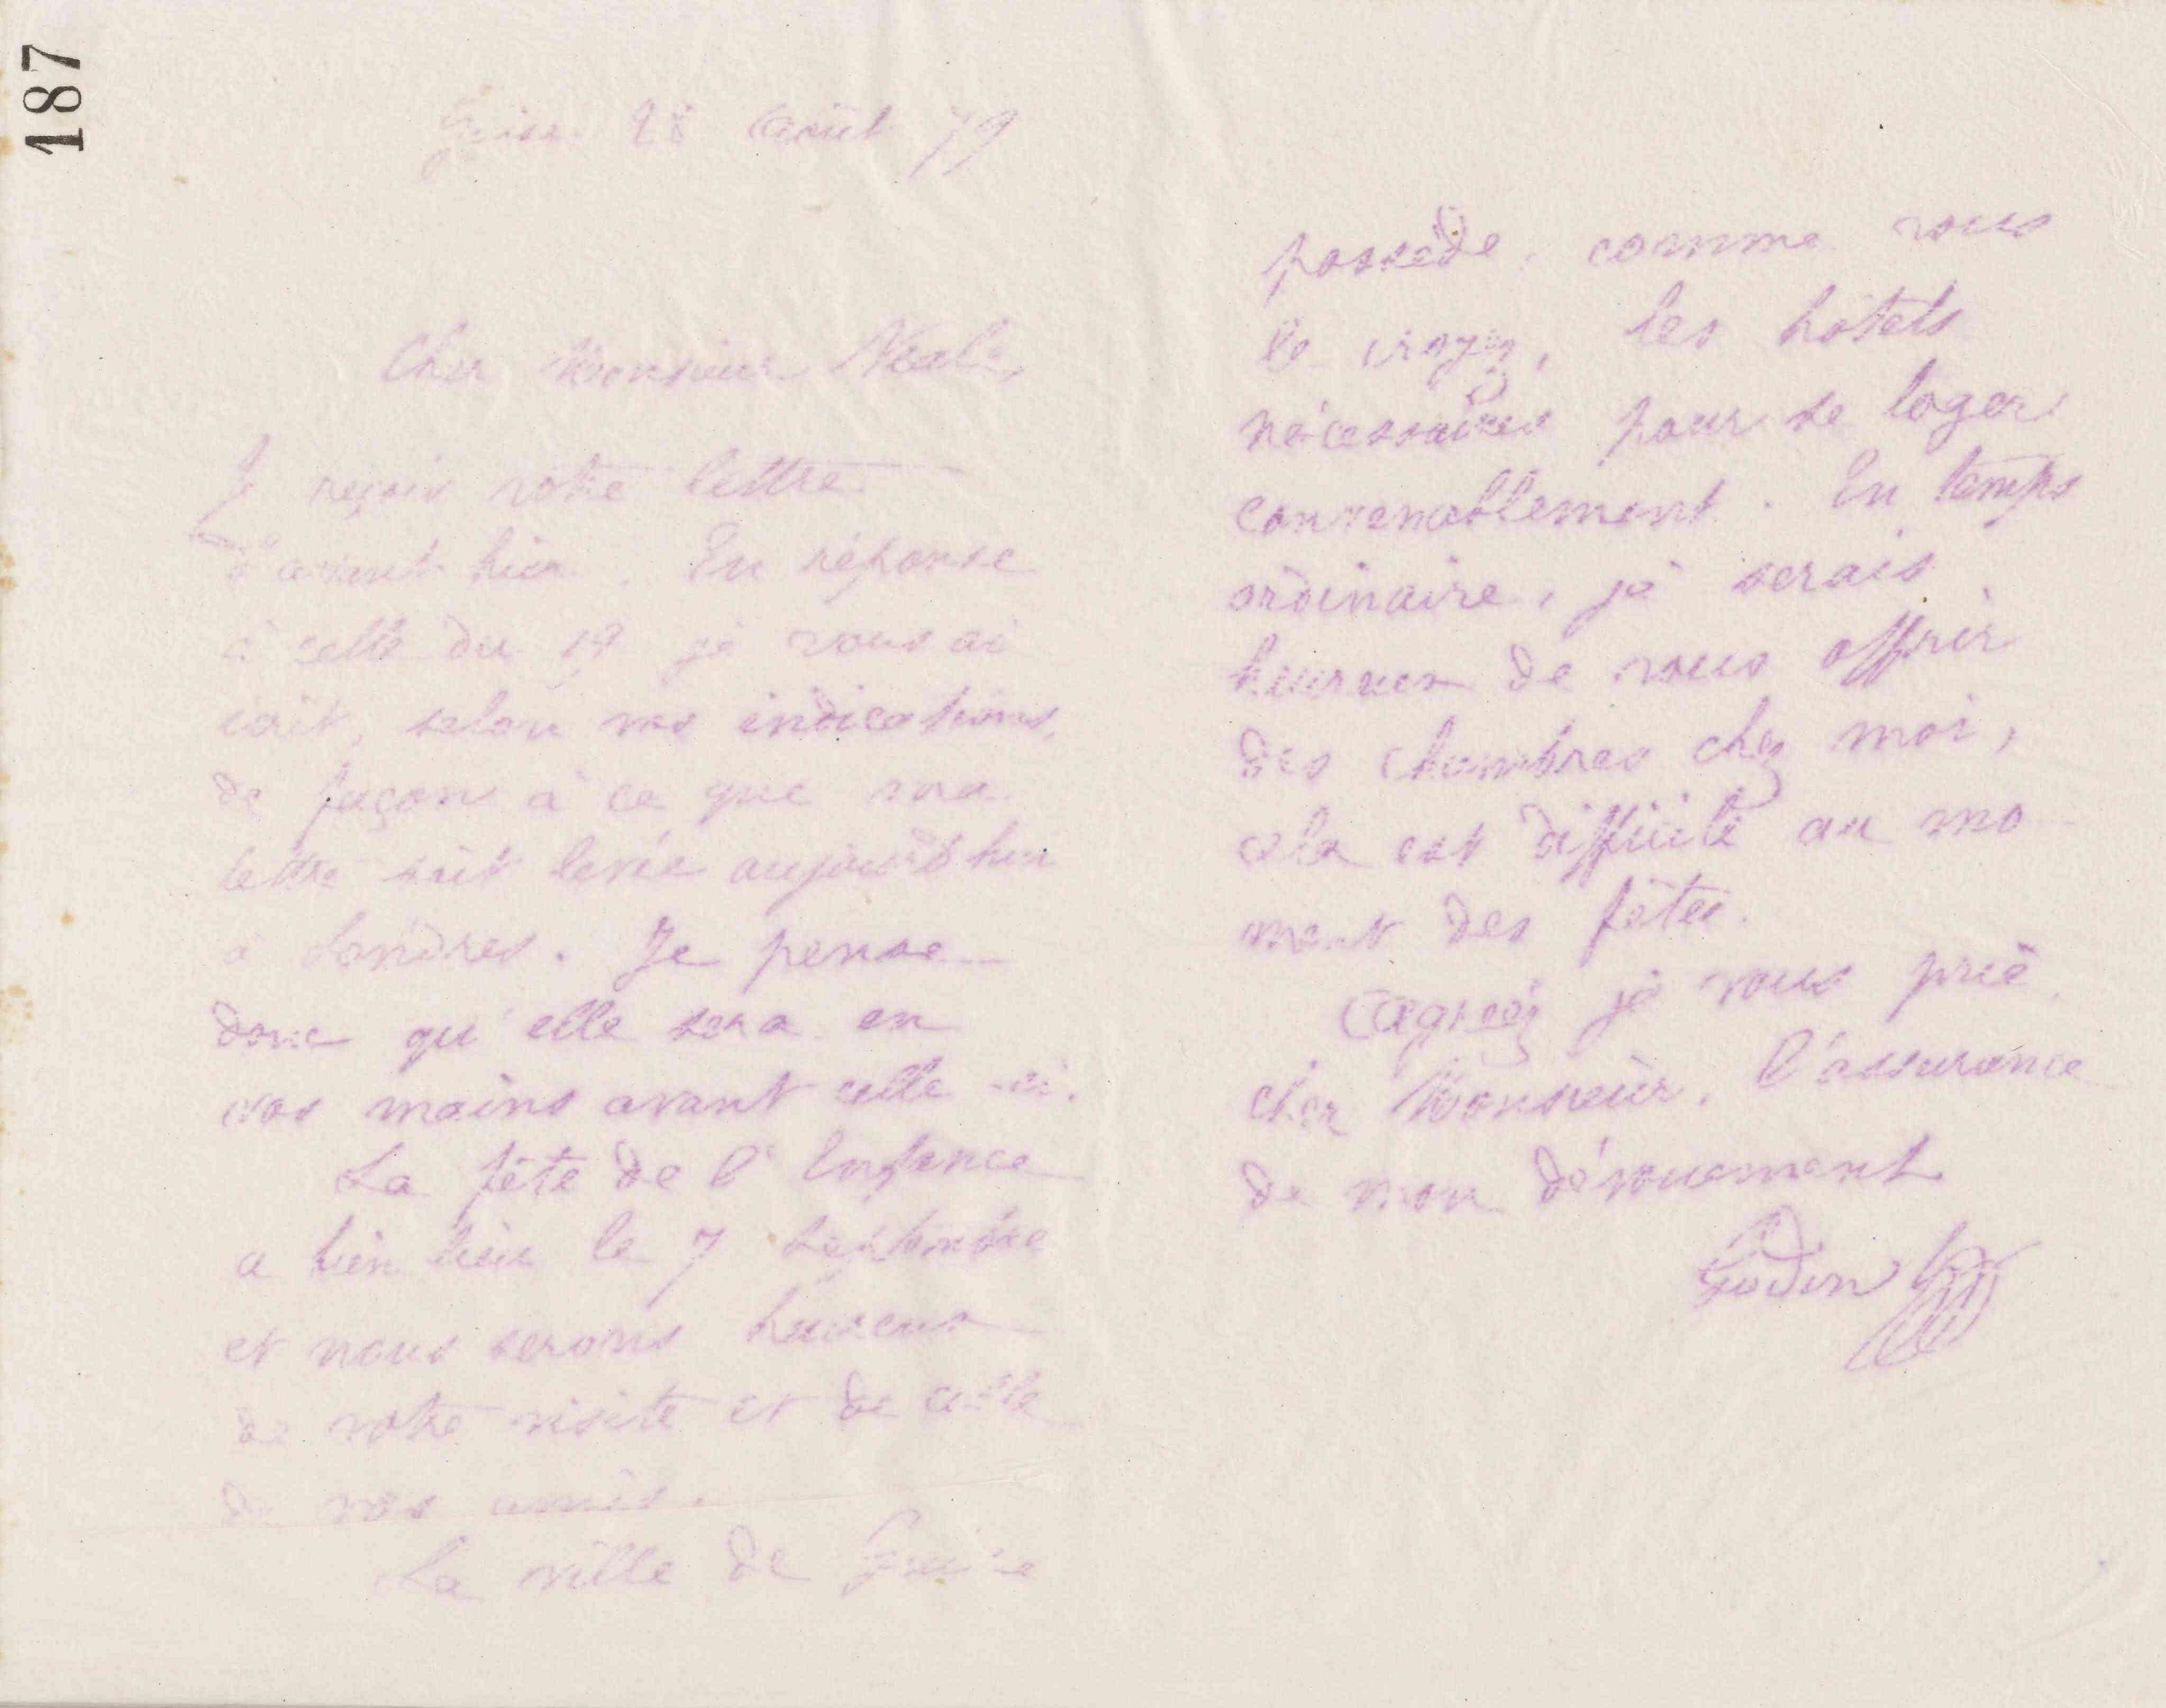 187
Guise 28 Août 79
Cher Monsieur Neale,
Je reçois votre lettre
d'avant hier. En réponse
à celle du 19 je vous ai
écrit, selon vos indications,
de façon à ce que ma
lettre soit levée aujourd'hui
à Londres. Je pense
donc qu'elle sera en
vos mains avant celle-ci.
La fête de l'Enfance
a bien lieu le 7 Septembre
et nous serons heureux
de votre visite et de celle
de vos amis.
La ville de Guise
possède, comme vous
le croyez, les hôtels
nécessaires pour se loger
convenablement. En temps
ordinaire, je serais
heureux de vous offrir
des chambres chez moi,
cela est difficile au mo-
ment des fêtes.
Agréez je vous prie
cher Monsieur, l'assurance
de mon dévouement
Godin